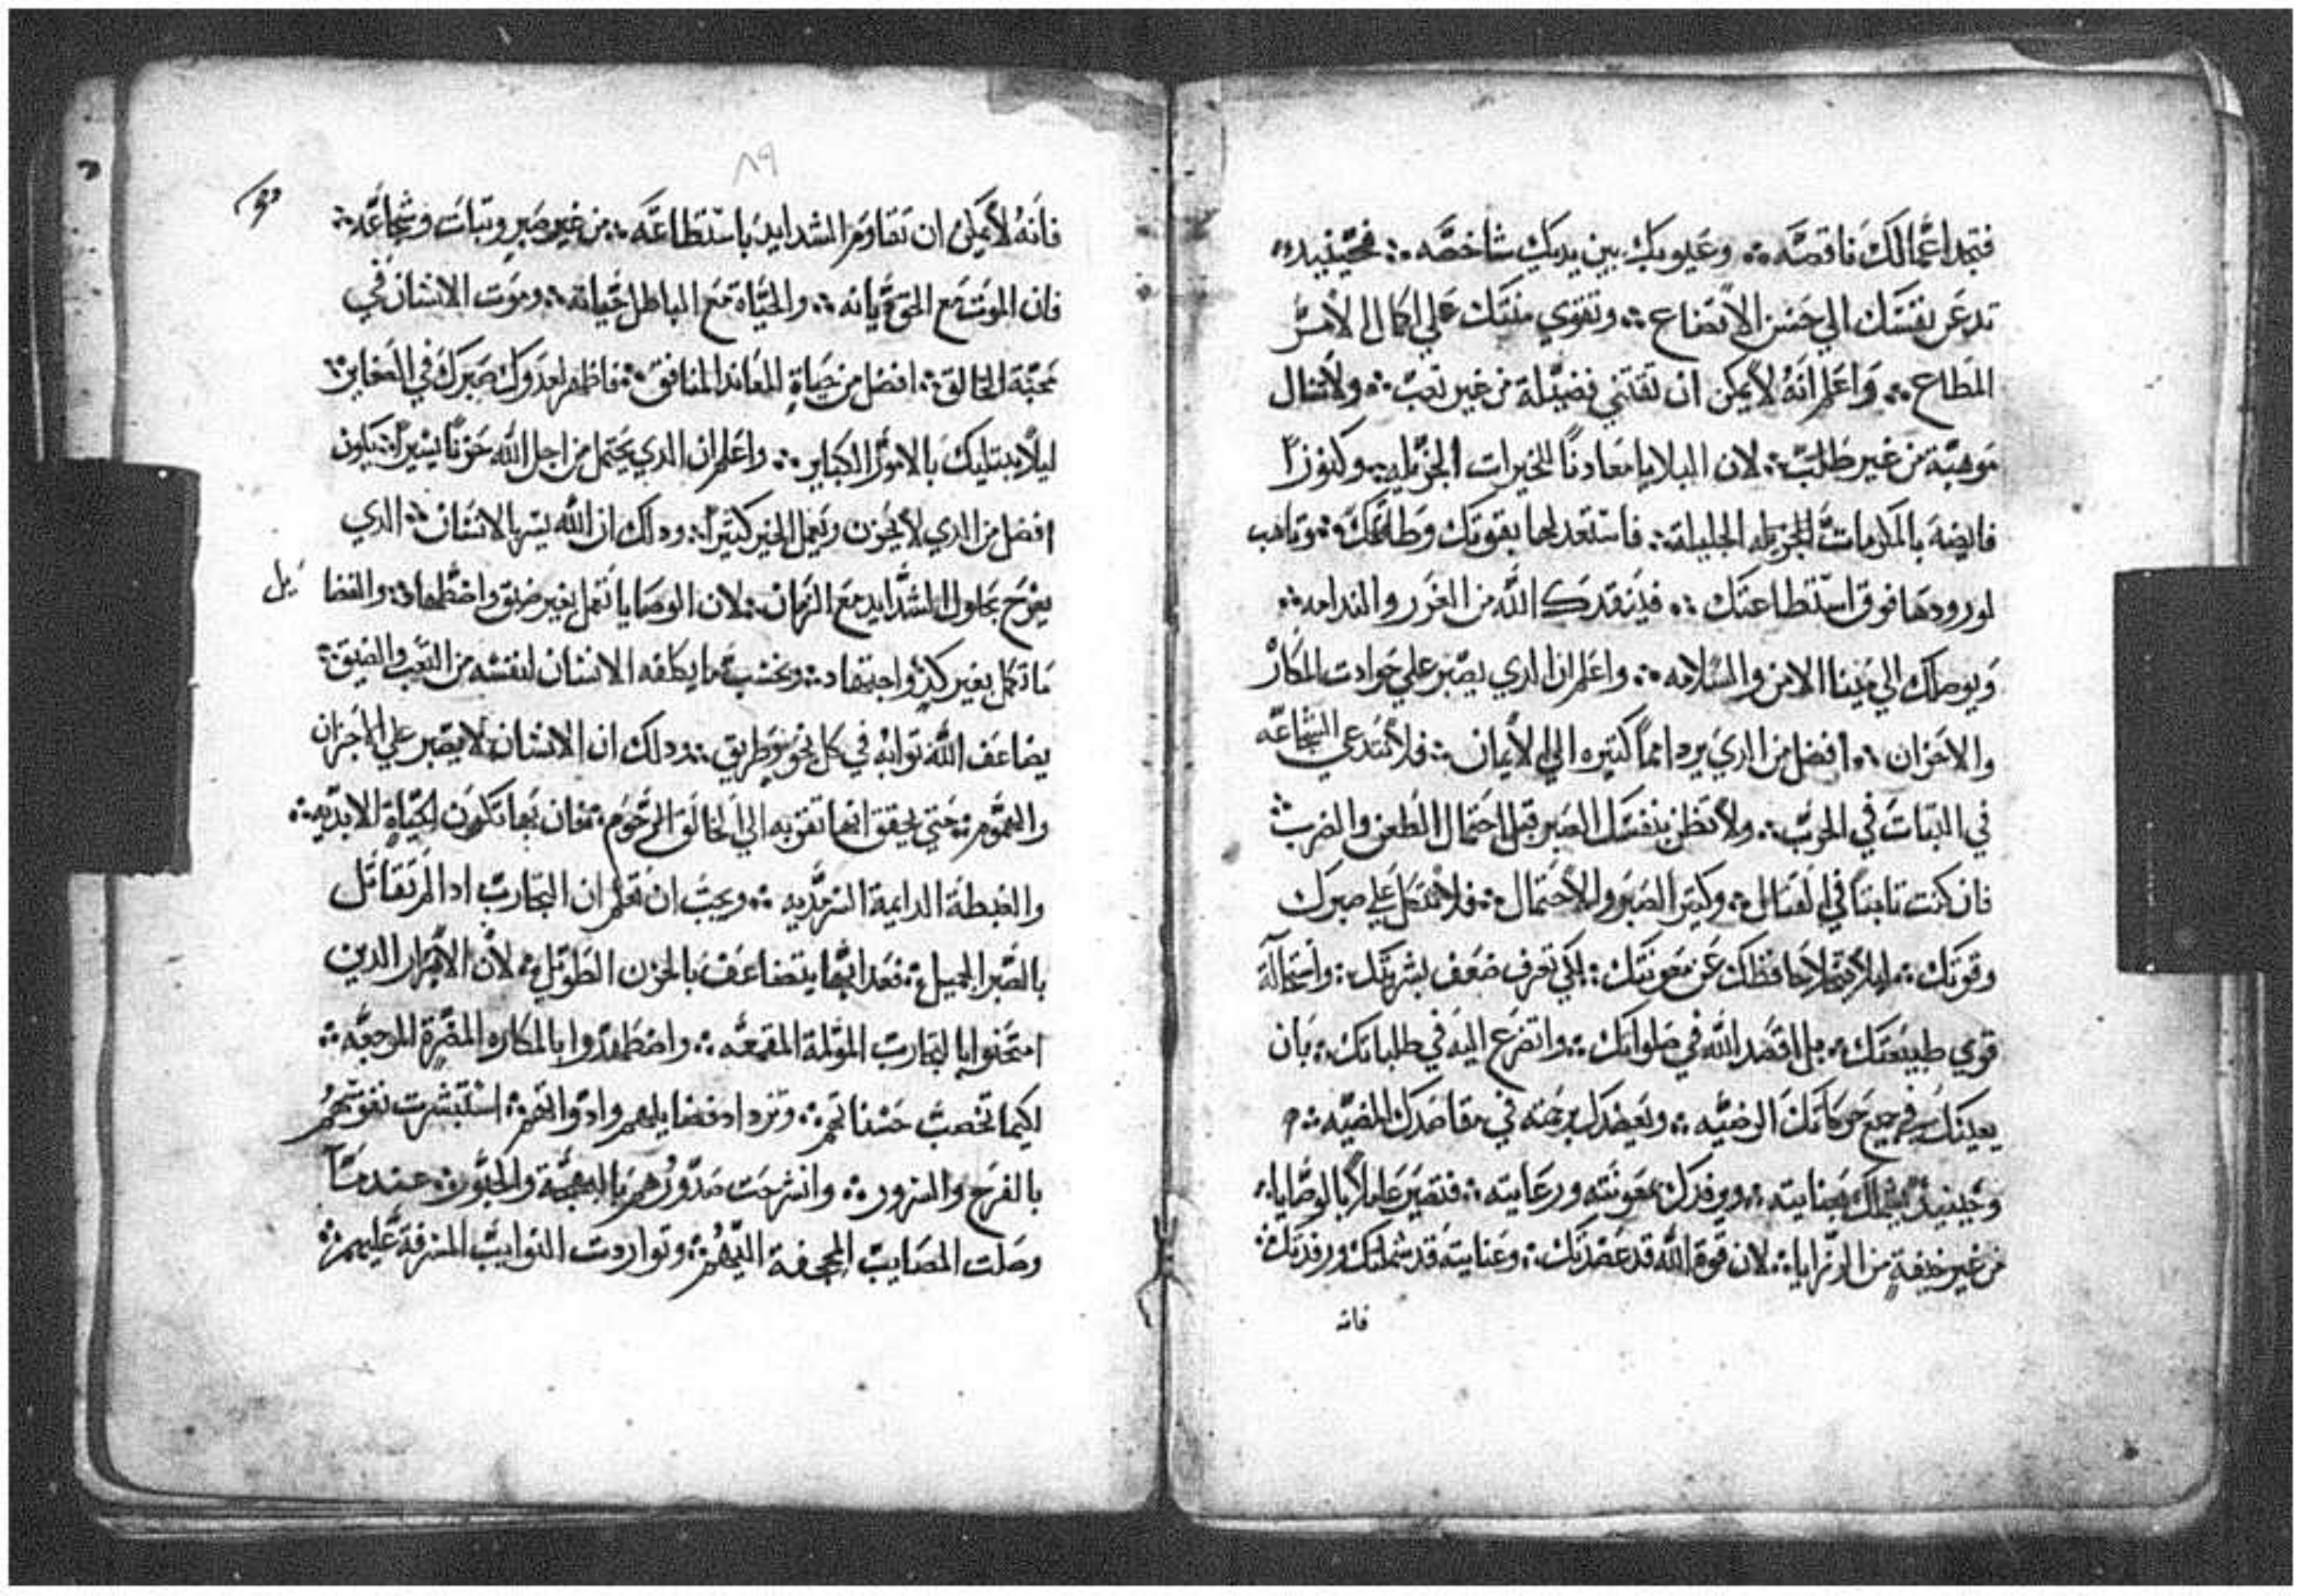 فتجد اعمالك ناقصه ؞ وعيوبك بين يديك شاخصه ؞ فحينيد
تدعن نفسك الي حسن الاتضاع ؞ وتقوي منتك علي اكمال الامر
المطاع ؞ واعلم انه لا يمكن ان تقتني فضيلة من غير تعب ؞ ولا تنال
موهبة من غير طلب ؞ لان البلايا معادنًا للخيرات الجزيله ؞ وكنوزًا
فايضة بالمكرمات الجزيله الجليلة ؞ فاستعد لها بقوتك وطاقتك ؞ وتاهب
لورودها فوق استطاعتك ؞ فينقدك الله من الغرر والندامه ؞
ويوصلك الي مينا الامن والسلامه ؞ واعلم ان الدي يصبر علي حوادت المكاره
والاحزان ؞ افضل من الدي يرد امماً كتيره الي الايمان ؞ فلا تدعي الشجاعه
في التبات في الحرب ؞ ولا تظن بنفسك الصبر قبل احتمال الطعن والضرب
فان كنت تابتًا في القتال ؞ وكتير الصبر والاحتمال ؞ فلا تتكل علي صبرك
وقوتك ؞ ليلا يتخلا حافظك عن معونتك ؞ لكي تعرف ضعف بشريتك ؞ واستحالة
قوي طبيعتك ؞ بل اقصد الله في صلواتك ؞ واتضرع اليه في طلباتك ؞ بان
يعينك في جميع حركاتك الرضيه ؞ ويعضدك برحمته في مقاصدك المضيه ؞
وحينيد يشملك بعنايته ؞ ويرفدك بمعونته ورعايته ؞ فتصير عاملاً بالوصايا
من غير خيفةٍ من الرزايا ؞ لان قوة الله قد عضدتك ؞ وعنايته قد شملتك ورفدتك ؞
فانه
٨٩
فانه لا يمكن ان تقاوم الشدايد باستطاعه ؞ من غير صبرٍ وتبات وشجاعه ؞
فان الموت مع الحق حياته ؞ والحياة مع الباطل خيانه ؞ وموت الانسان في
محبة الخالق ؞ افضل من حياة المعاند المنافق ؞ فاظهر لعدوك صبرك في الصغاير ؞
ليلا يبتليك بالامور الكباير ؞ واعلم ان الدي يحتمل من اجل الله حزنًا يسيرًا ؞ يكون
افضل من الدي لا يحزن ويعمل الخير كتيرًا ؞ ودلك ان الله يسر بالانسان ؞ الدي
يفرح بحلول الشدايد مع الزمان ؞ لان الوصايا تعمل بغير ضيق واضطهاد ؞ والفضا
يل
ما تكمل بغير كدٍ واجتهاد ؞ وبحسب ما يكلفه الانسان لنفسه من التعب والضيق ؞
يضاعف الله توابه في كل نحوٍ وطريق ؞ ودلك ان الانسان لا يصبر علي الاحزان
والهموم ؞ حتي يحقق انها تقربه الي الخالق الرحوم ؞ فان بها تكون الحياة الابديه ؞
والغبطة الدايمة السرمديه ؞ ويجب ان تعلم ان التجارب ادا لم تقاتل
بالصبر الجميل ؞ فعدابها يتضاعف بالحزن الطويل ؞ لان الابرار الدين
امتحنوا بالتجارب المولمة المقمعه ؞ واضطهدوا بالمكاره المضرة الموجعه ؞
لكيما تخصب حسناتهم ؞ وتزداد فضايلهم وادواتهم ؞ استبشرت نفوسهم
بالفرح والسرور ؞ وانشرحت صدورهم بالبهجة والحبور ؞ عندما
وصلت المصايب المجحفة اليهم ؞ وتواردت النوايب المسرفة عليهم ؞